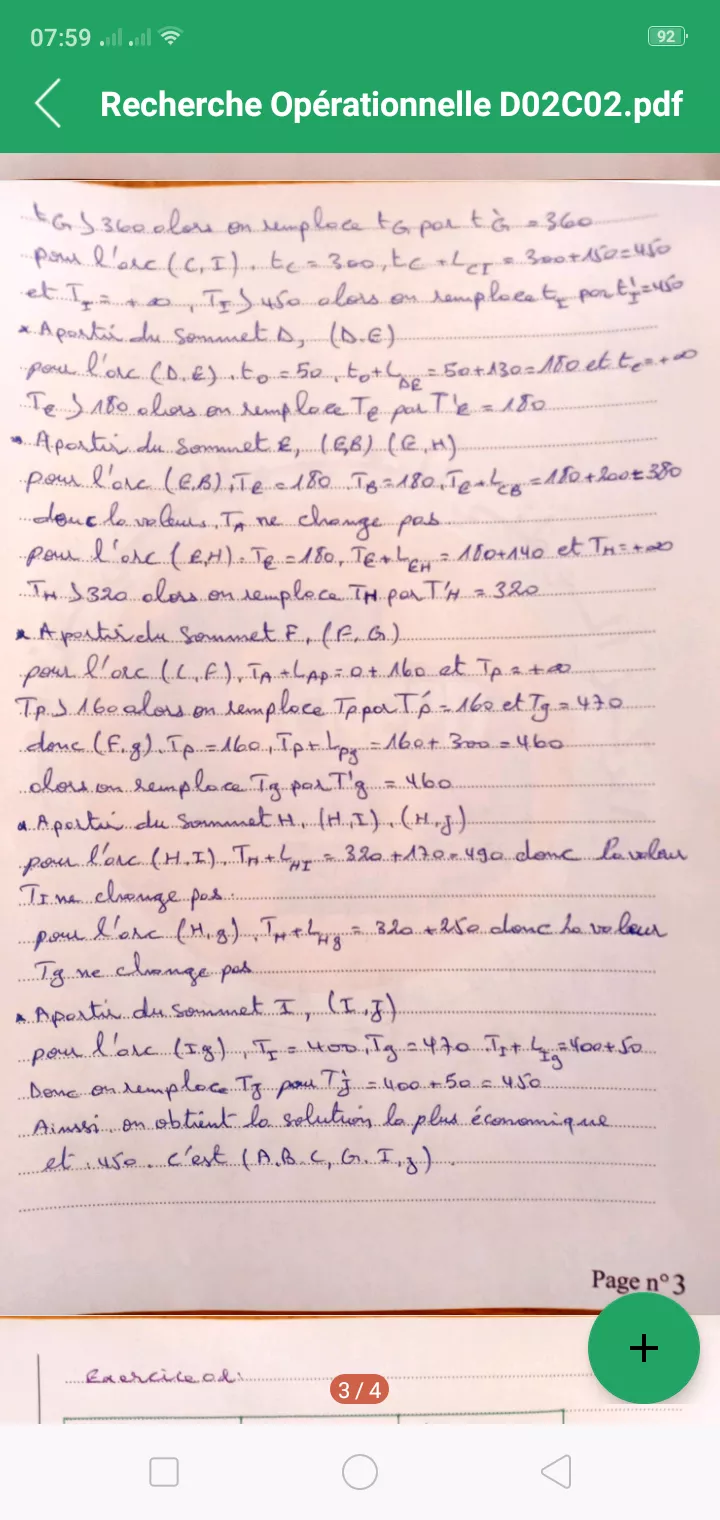 07:59
92
Recherche Opérationnelle D02C02.pdf
tG > 360 alors on remplace tG par t'G = 360
pour l'arc (C, I). tC = 300, tC + LCI = 300+150=450
et TI = +∞, TI > 450 alors on remplace tI par t'I=450
* Apartir du sommet D, (D.E)
pour l'arc (D.E). tD = 50, tD+LDE = 50+130=180 et te=+∞
Te > 180 alors on remplace Te par T'e = 180
* Apartir du sommet E, (E,B) (E,H)
pour l'arc (E,B), TE = 180 TB=180, TE+LCB = 180+200=380
donc la valeurs, TA ne change pas
pour l'arc (E,H). TE = 180, TE+LEH = 180+140 et TH=+∞
TH > 320 alors on remplace TH par T'H = 320
* Apartir du sommet F, (F,G)
pour l'arc (L,F), TA+LAP=0+160 et TP=+∞
TP > 160 alors on remplace TP par T'P=160 et Tg=470
donc (F,g). TP =160, TP+LPg=160+300=460
alors on remplace Tg par T'g = 460
* Apartir du sommet H, (H,I), (H,J)
pour l'arc (H.I), TH+LHI = 320+170=490 donc la valeur
TI ne change pas.
pour l'arc (H,g). TH+LHg = 320+250 donc la valeur
Tg ne change pas
* Apartir du sommet I, (I,J)
pour l'arc (Ig), TI = 400, Tg = 470 TI+LIg=400+50
Donc on remplace TJ pour T'J = 400+50=450
Ainssi on obtient la solution la plus économique
et 450. c'est (A.B.C, G. I,J).
Page n° 3
Exercice 02:
3 / 4
+